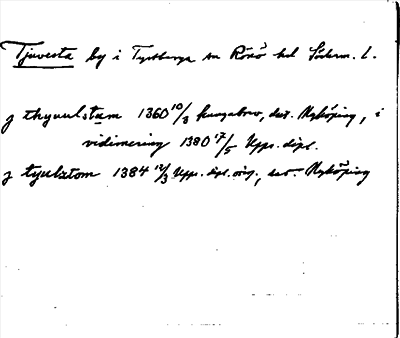 Tjuvesta by i Tystberga sn Rönö hd Söderm. l.
J thyuulstam 1360 10/3 kungabrev, dat. Nyköping, i
vidimering 1380 17/5 Upps. dipl.
J tyulztom 1384 12/3 Upps. dipl. orig., dat. Nyköping